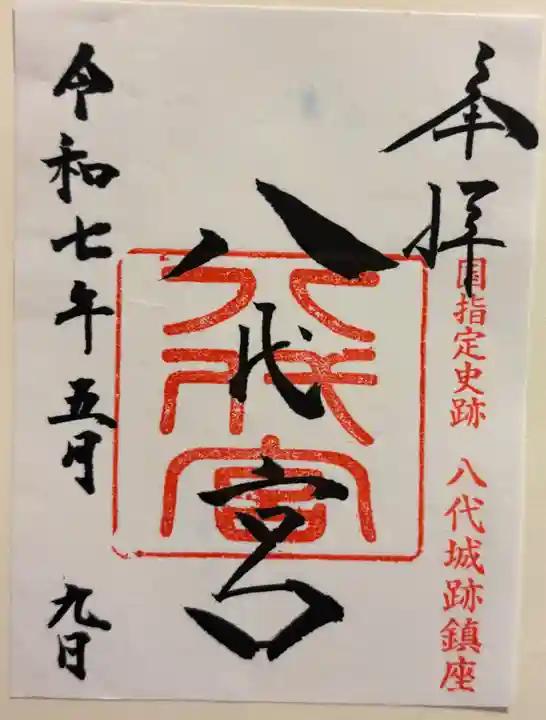 奉拝
国指定史跡 八代城跡鎮座
八代宮
八代宮
令和七年五月 九日